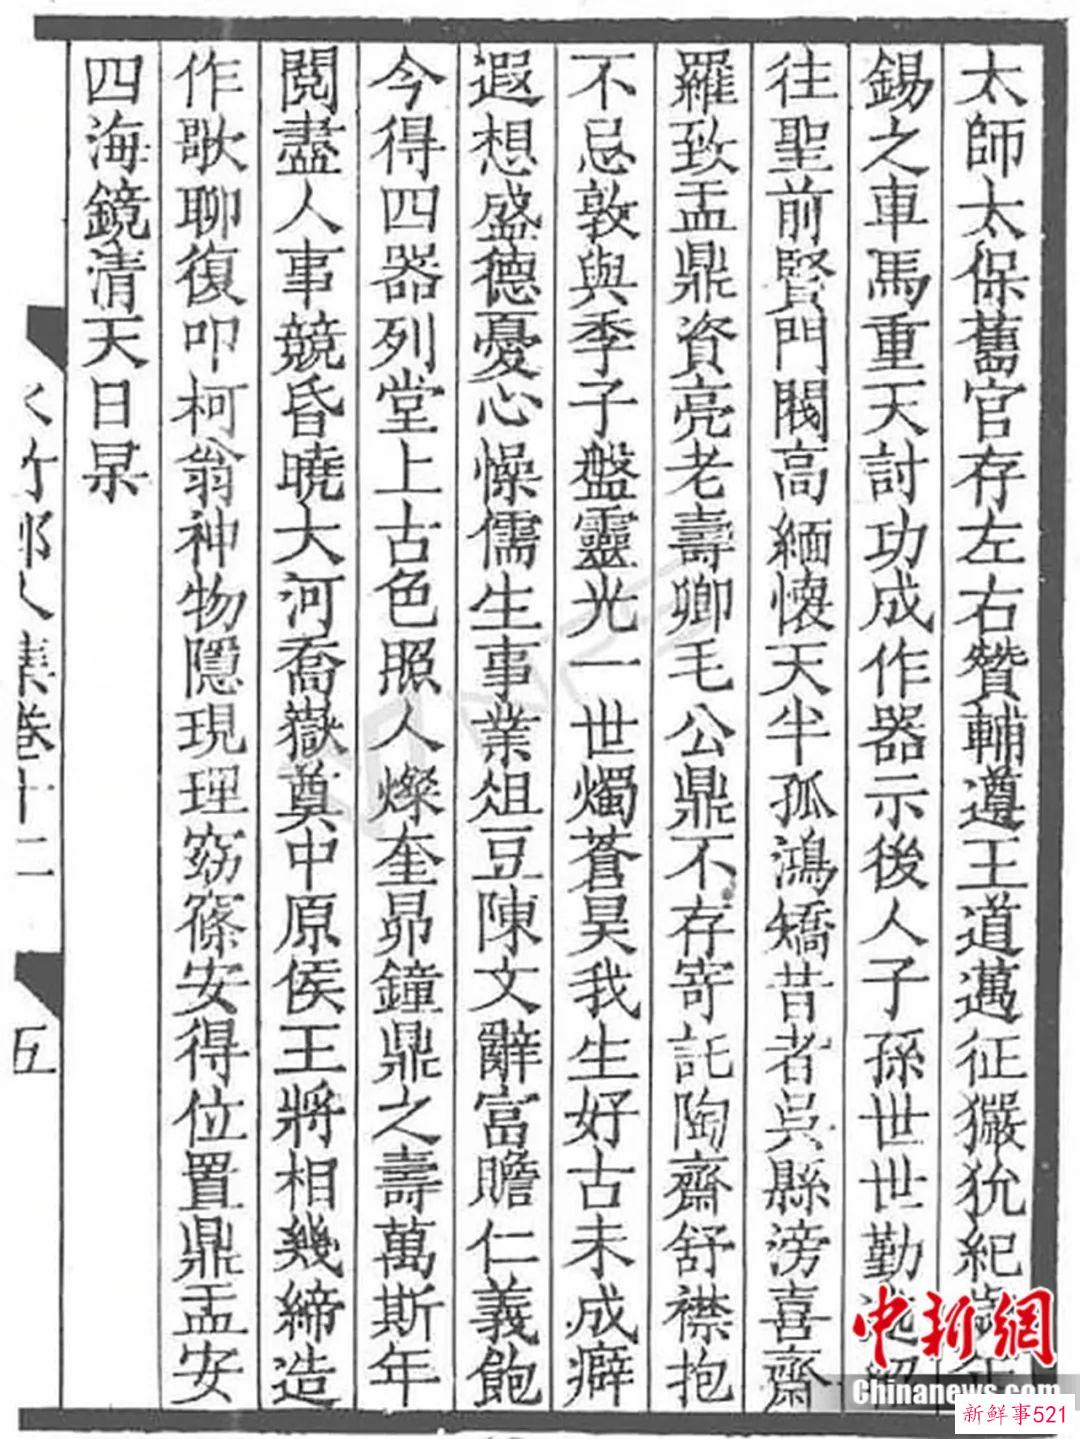 太師太保舊官存左右贊輔遵王道薖征玁狁紀
錫之車馬重天討功成作器示後人子孫世世勤
往聖前賢門閥高緬懷天半孤鴻矯昔者吳縣滂喜齋
羅致盂鼎資亮老壽卿毛公鼎不存寄託陶齋舒襟抱
不忌敦與季子盤靈光一世燭蒼昊我生好古未成癖
遐想盛德憂心懆儒生事業俎豆陳文辭富贍仁義飽
今得四器列堂上古色照人燦奎昴鐘鼎之壽萬斯年
閱盡人事競昏曉大河喬嶽奠中原侯王將相幾締造
作歌聊復叩柯翁神物隱現理窈窱安得位置鼎盂安
四海鏡清天日杲
水竹邨人集卷十二
五
中新網
Chinanews.com
新鲜事521